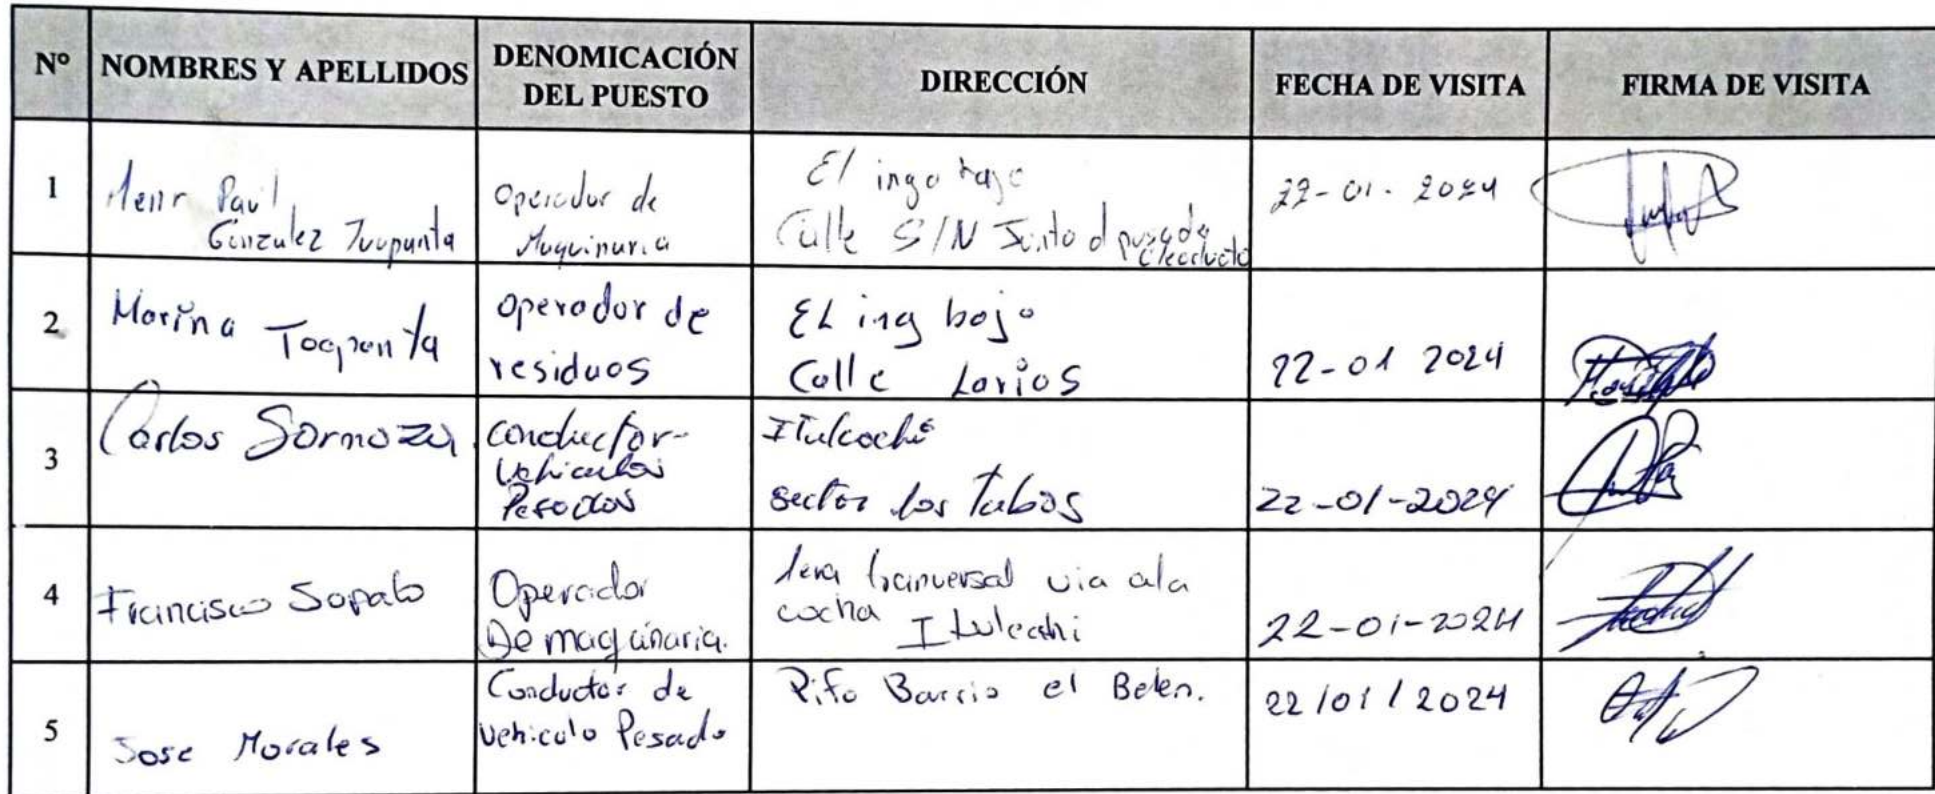 Nº NOMBRES Y APELLIDOS DENOMICACIÓN DEL PUESTO DIRECCIÓN FECHA DE VISITA FIRMA DE VISITA
1
Paul
Gonzalez
Operador de
Maquinaria
El ingo bajo
Calle S/N Junto
22-01-2024
2
Marina
operador de
residuos
EL ing bajo
Calle Larios
22-01 2024
3
Carlos Sornoza
conductor-
Vehiculos
Pesados
Itulcachi
sector los tubos
22-01-2024
4
Francisco Sopalo
Operador
De maquinaria.
1era tranversal via ala
cocha Itulcachi
22-01-2024
5
Jose Morales
Conductor de
vehiculo Pesado
Pifo Barrio el Belen.
22/01/2024